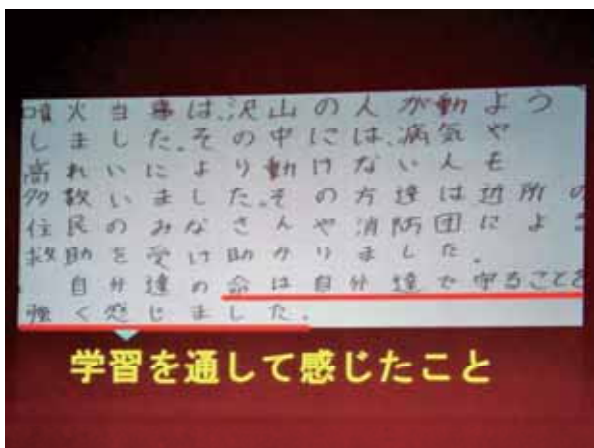 噴火当時は、沢山の人が動よう
しました。その中には、病気や
高れいにより動けない人も
多数いました。その方達は近所の
住民のみなさんや消防団によ
救助を受け助かりました。
自分達の命は自分達で守ることを
強く感じました。
学習を通して感じたこと